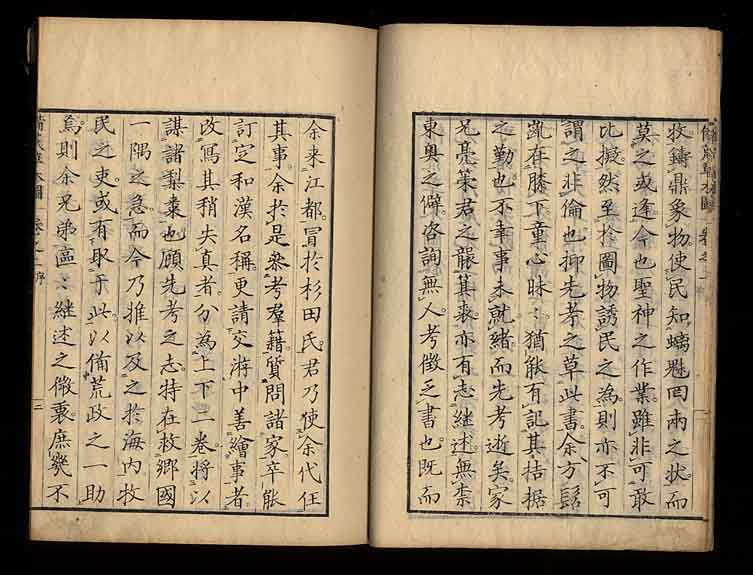 牧鑄鼎象物使民知螭魅罔兩之状而
莫之或逢今也聖神之作業雖非可敢
比擬然至於圖物誘民之為則亦不可
謂之非倫也抑先考之草此書余方髫
齓在膝下童心昧〻猶能有記其拮据
之勤也不幸事未就緒而先考逝矣家
兄亮策君之襲箕裘亦有志継述無柰
東奥之僻咨詢無人考徴乏書也既而
余来江都冒於杉田氏君乃使余代任
其事余於是参考群籍質問諸家卒能
訂定和漢名稱更請交游中善繪事者
改寫其稍失真者分為上下二卷将以
謀諸梨棗也顧先考之志特在救郷國
一隅之急而今乃推以及之於海内牧
民之吏或有取于此以備荒政之一助
焉則余兄弟區〻継述之微衷庶幾不
備荒草木圖 卷之上 序
二